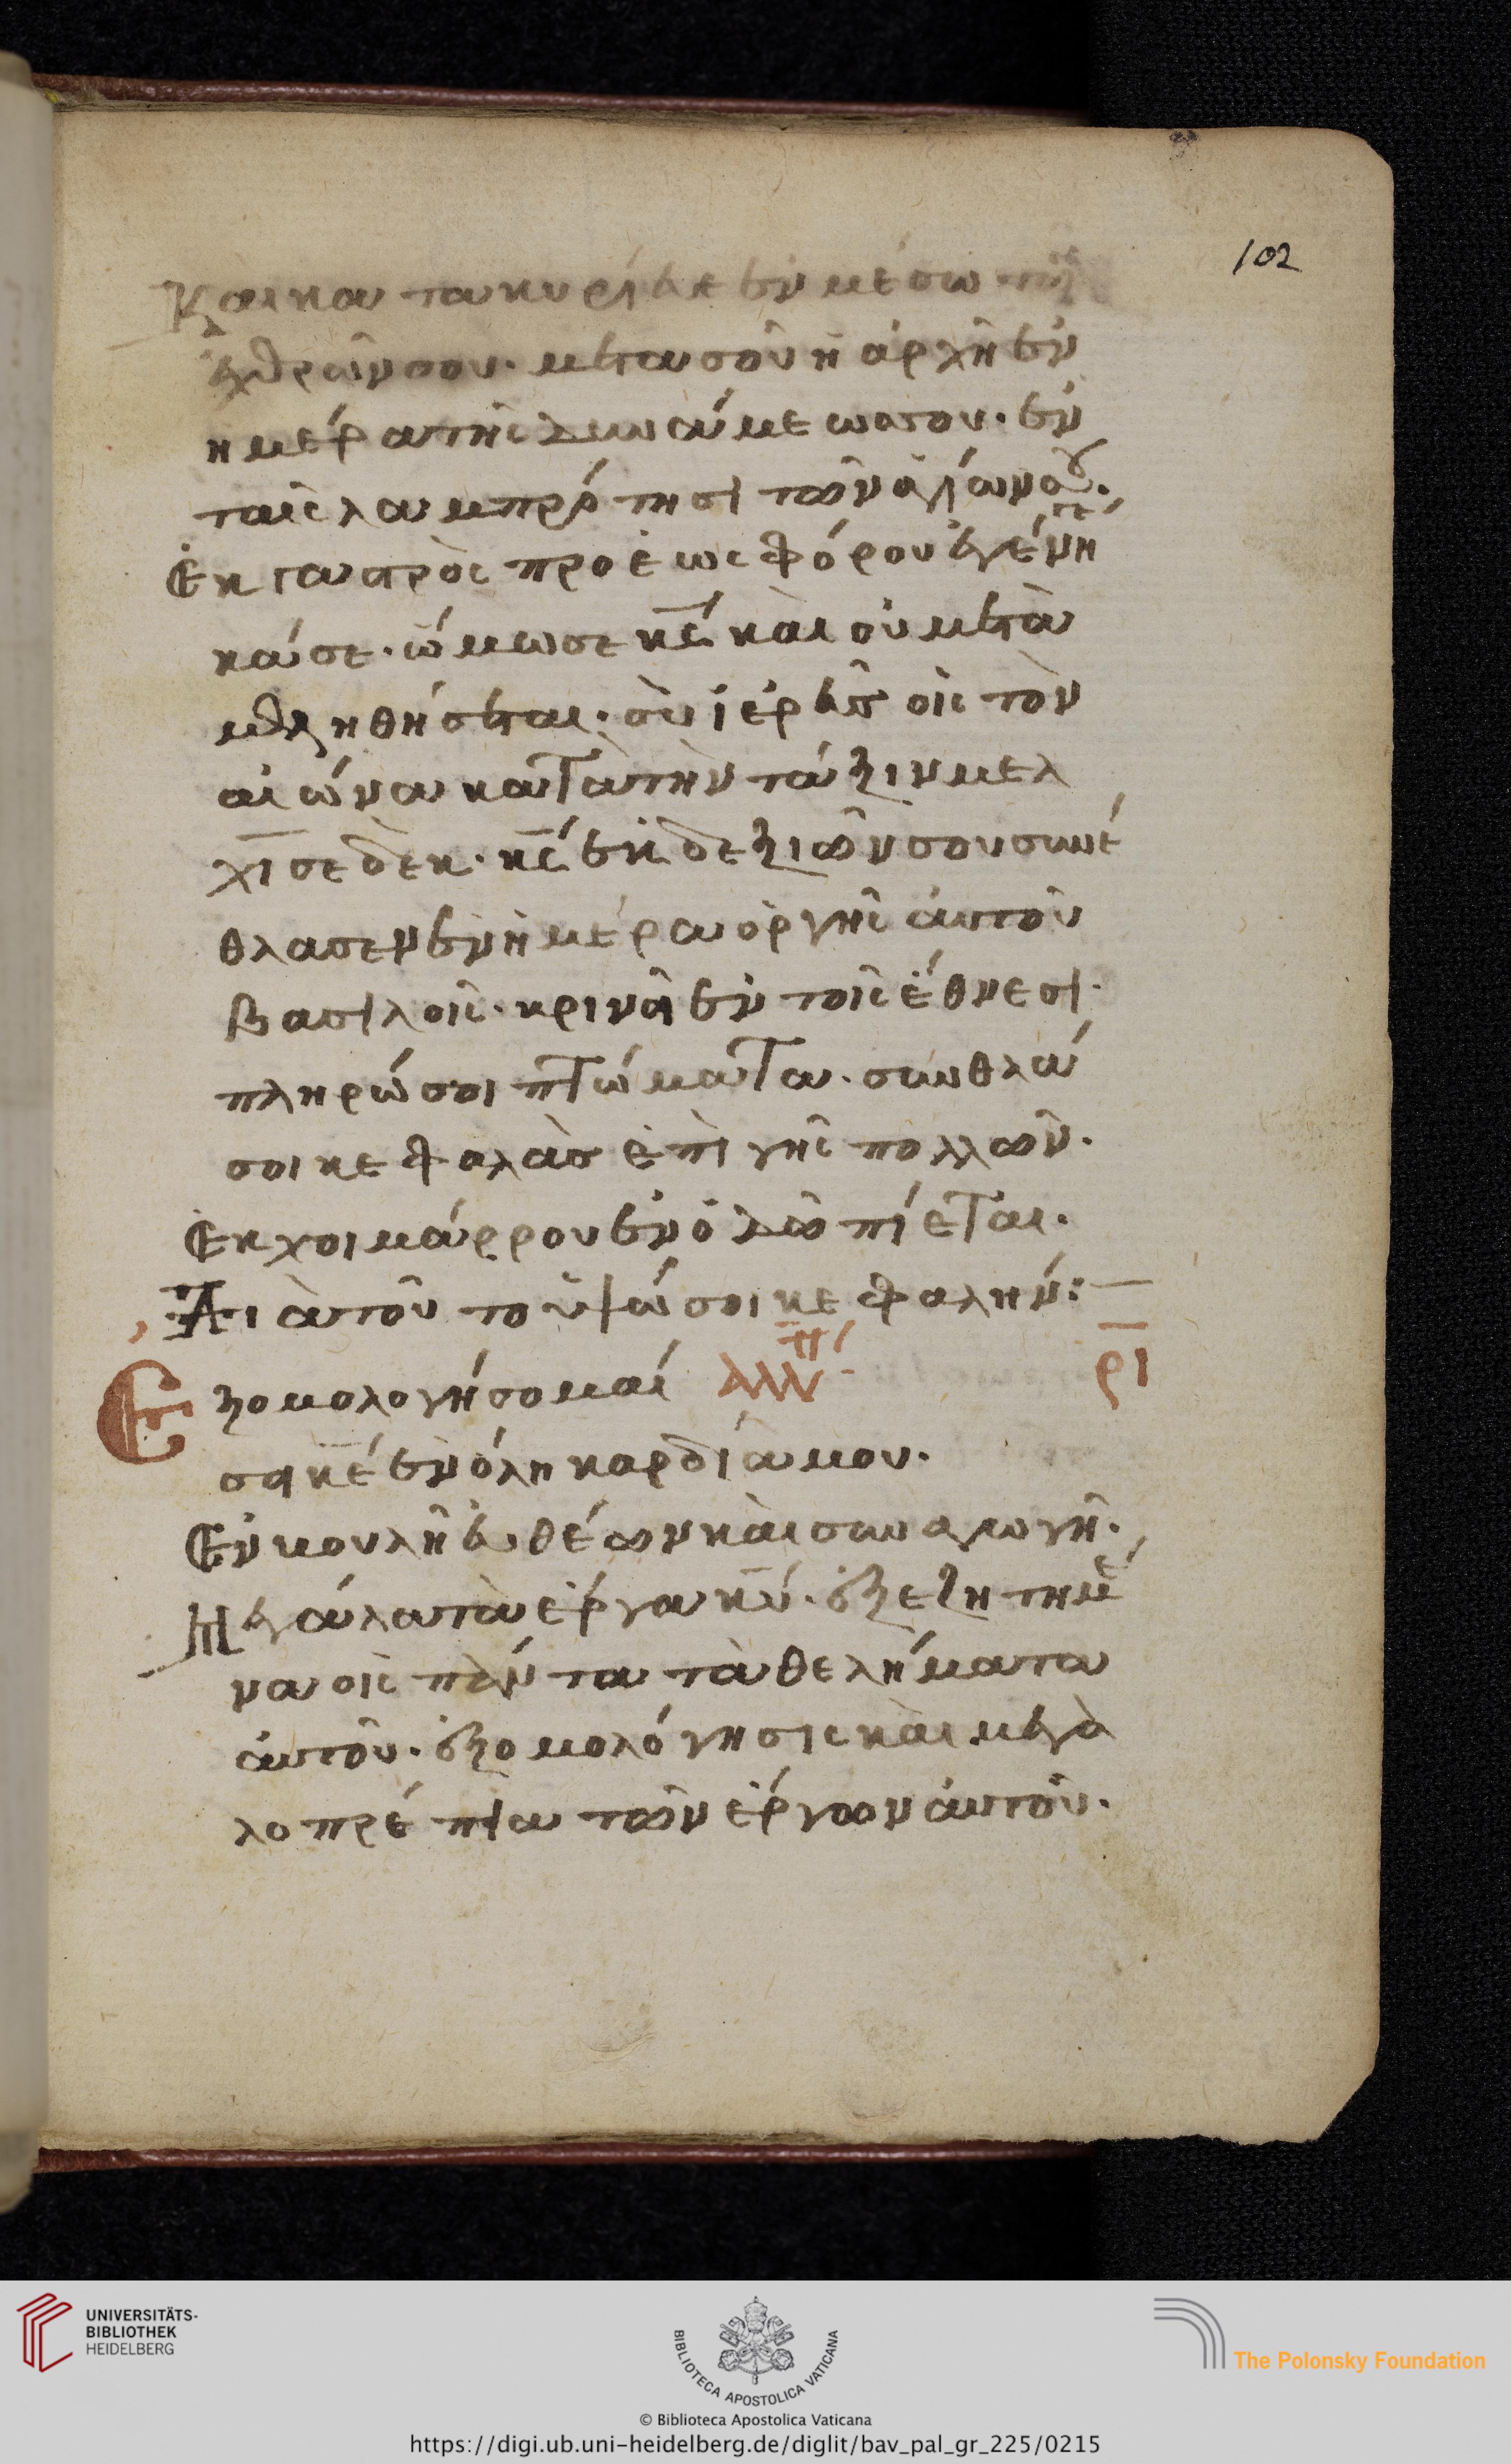 102
Και κατακυρίευε ἐν μέσω τῶν
ἐχθρῶν σου. μετα σοῦ ἡ ἀρχὴ ἐν
ημέρα τῆς δυνάμεως σου. ἐν
ταῖς λαμπρότησι τῶν ἁγίων σου.
Ἐκ γαστρὸς προ ἑωσφόρου ἐγέννη
κά σε. ὤμωσε κς καὶ οὐ μετα
μεληθήσεται. σὺ ἱερεὺς εἰς τὸν
αἰώνα κατὰ τὴν τάξιν μελ
χισεδὲκ. κς ἐκ δεξιῶν σου συνέ
θλασεν ἐν ἡμέρα ὀργῆς ἀυτοῦ
βασιλεῖς. κρινεῖ ἐν τοῖς ἔθνεσι.
πληρώσει πτώματα. συνθλά
σει κεφαλὰς ἐπὶ γῆς πολλῶν.
Ἐκ χειμάρρου ἐν ὁδῶ πίεται.
Διὰ τοῦ το ὑψώσει κεφαλην:—
Ἐξομολογήσομαί ρι
σοι κε ἐν ὅλη καρδία μου.
Ἐν βουλῆ ἐυθέων καὶ συναγωγῆ.
Μεγάλα τὰ ἔργα κυ. ἐξεζητημέ
να εἰς πάντα τὰ θελήματα
ἀυτοῦ. ἐξομολόγησις καὶ μεγα
λοπρέπια τῶν ἔργων ἀυτοῦ.
UNIVERSITÄTS-
BIBLIOTHEK
HEIDELBERG
BIBLIOTECA APOSTOLICA VATICANA
The Polonsky Foundation
© Biblioteca Apostolica Vaticana
https://digi.ub.uni-heidelberg.de/diglit/bav_pal_gr_225/0215